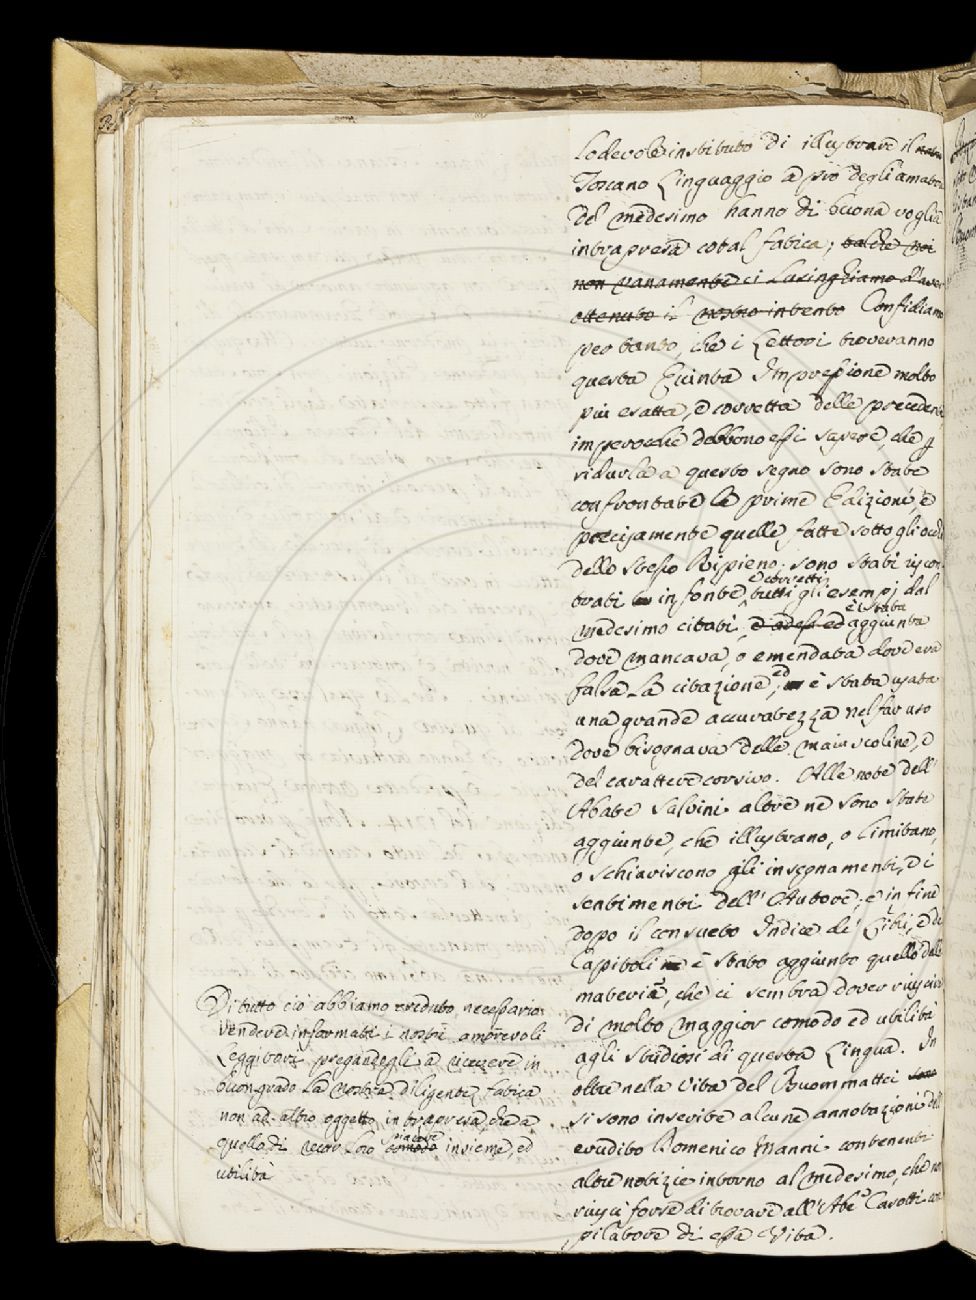 Lodevole instituto di illustrare il
Toscano Linguaggio a prò degli amatori
del medesimo hanno di buona voglia
intrapresa cotal fatica; talchè noi
non vanamente ci lusinghiamo d'aver
ottenuto il nostro intento Confidiamo
per tanto, che i Lettori troveranno
questa Quinta Impressione molto
più esatta, e corretta delle precedenti,
imperocchè debbono essi sapere, che p
ridurla a questo segno sono state
confrontate le prime Edizioni, e
precisamente quelle fatte sotto gli occhi
dello stesso Ripieno; sono stati riscon
trati in fonte, e corretti tutti gli esempj dal
medesimo citati, e adess ed è stata aggiunta
dove mancava, o emendata dove era
falsa la citazione; ed è stata usata
una grande accuratezza nel far uso
dove bisognava delle maiuscoline, e
del carattere corsivo. Alle note dell'
Abate Salvini altre ne sono state
aggiunte, che illustrano, o limitano,
o schiariscono gli insegnamenti, e i
sentimenti dell'Autore; e in fine
dopo il consueto Indice de' Libri, e de
Capitoli è stato aggiunto quello delle
materie, che ci sembra dover riuscire
di molto maggior comodo ed utilità
agli studiosi di questa Lingua. In
oltre nella Vita del Buommattei sono
si sono inserite alcune annotazioni dell
erudito Domenico Manni contenenti
altre notizie intorno al medesimo, che non
riuscì forse di trovare all'Abe Casotti com
pilatore di essa Vita.
Di tutto ciò abbiamo creduto necessario
rendere informati i nostri amorevoli
Leggitori pregandogli a ricevere in
buon grado la nostra diligente fatica
non ad altro oggetto intrapresa, che a
quello di recar loro comodo piacere insieme, ed
utilità